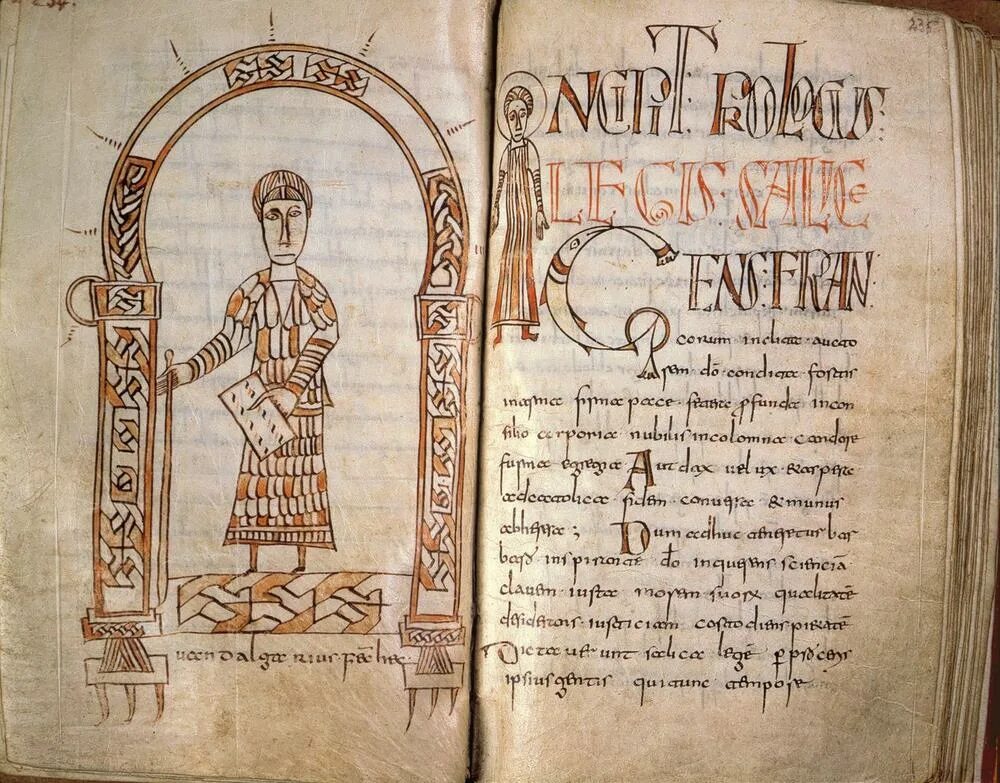 234.
uuandalgarius fec hec
235
INCIPIT PROLOGUS
LEGIS SALICE
GENS FRAN
corum inclita aucto
dō condita fortis
firma pace profunda incon
silio corporia nubilis incolomna candore
furma egregia Audax uelux & aspera
catolica fidem conuersa & munus
ab heresa; Dum adhuc teneretur bar
bara inspirante dō inquerens scienciā
clauem iuxta morem suorum qualitatē
desiderans iusticiam costodiens pietatē
Dictauerunt salica legē per proceris
ipsius gentis qui tunc tempore